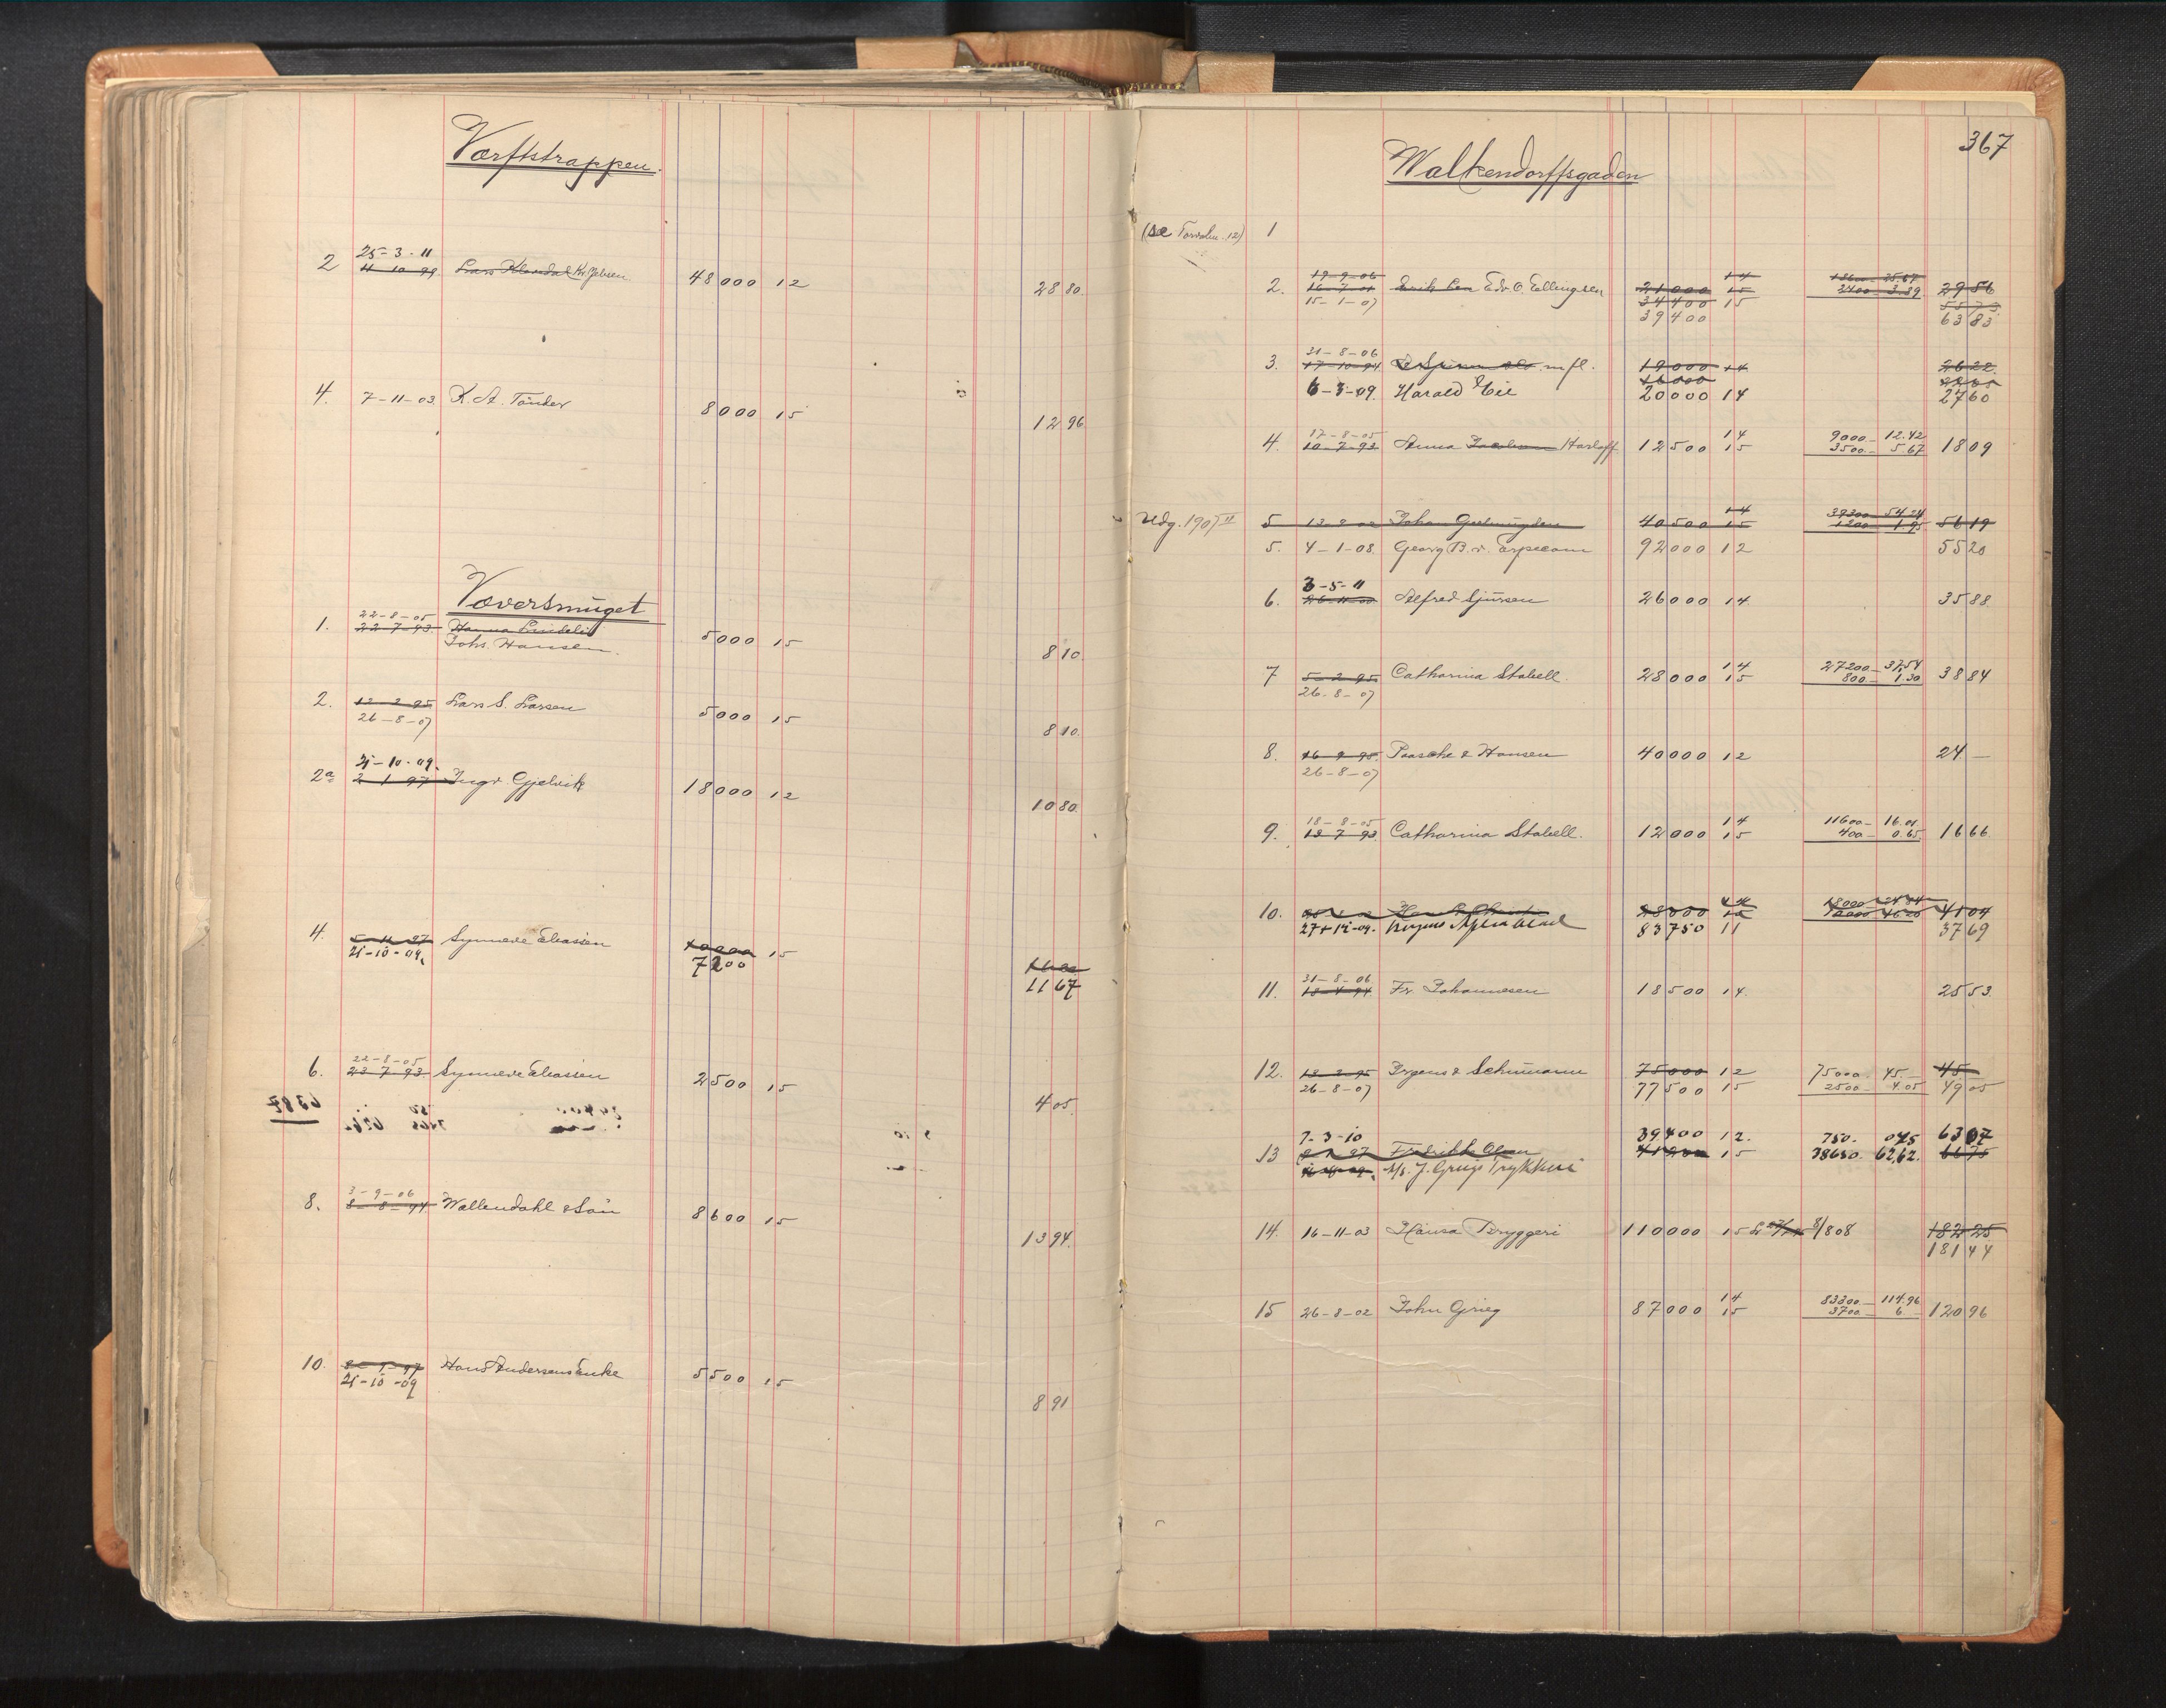 Værftstrappen.
25-3-11
2 11-10-99 Lars Klovdal Kr. Jebsen 48000 12 28 80.
4. 7-11-03 K. A. Tönder 8000 15 12 96
Væversmuget
22-8-05
1. 22-7-93 Hanna Lindelid 5000 15 8 10.
Johs. Hansen.
2. 12-2-95 Lars S. Larsen 5000 15 8 10.
26-8-07
21-10-09.
2a 2-1-97 Ingv. Gjelvik 18000 12 10 80.
4. 5-11-97 Synneve Eliassen 10000 15 16 20
21-10-09. 7200 11 67
22-8-05
6. 23-7-93. Synneve Eliassen 2500 15 4 05.
3-9-06
8. 8-8-94 Wallendahl & Sön 8600 15 13 94.
10. 8-1-97 Hans Andersens Enke 5500 15 8 91
21-10-09
367
Walkendorffsgaden
(se Torvalm. 12) 1
19-9-06 14 18600 - 25.67
2. 16-7-01 Edv. O. Ellingsen 21000 15 2400 - 3.89 29 56
15-1-07 34400 15 55 73
39400 63 83
31-8-06
3. 17-10-94 m fl. 19000 14 26 22
16000 22 08
6-3-09. Harald Eie 20000 14 27 60
17-8-05 14 9000 - 12.42
4. 10-7-93 Anna Jacobsen Harloff 12500 15 3500 - 5.67 18 09
14 39300 54.24
Udg. 1907 II 5 13-2-02 Johan Gudmundsen 40500 15 1200 - 1.95 56 19
5. 4-1-08. Georg B. v. Erpecom 92000 12 55 20
3-5-11
6. 26-11-00 Alfred Sjursen 26000 14. 35 88
14 27200 - 37.54
7 5-2-95 Catharina Stabell. 28000 15 800 - 1.30 38 84
26-8-07
8. 16-9-95. Paasche & Hansen 40000 12 24. —
26-8-07
18-8-05 14 11600 - 16.01
9. 13-7-93. Catharina Stabell. 12000 15 400 - 0.65 16 66.
14 18000 24 84
10. 28000 15 10000 16 20 41 04
27-12-09. 83750 11 37 69
31-8-06
11. 13-4-94 Fr. Johannesen 18500 14. 25 53.
12. 13-2-95 Krgens & Schumann 75000 12 75000. 45. — 45 —
26-8-07 77500 15 2500 - 4.05 49 05
7-3-10 39400 12. 750. 045 63 07
13 8-1-97 Fredrikke Olsen 41200 15 38650. 62,62. 66 75
A/s. J. Griegs Trykkeri
14. 16-11-03 Hansa Bryggeri 110000 15 8/808 182 25
181 44
14 83300 - 114.96
15 26-8-02 John Grieg 87000 15 3700 - 6 — 120 96